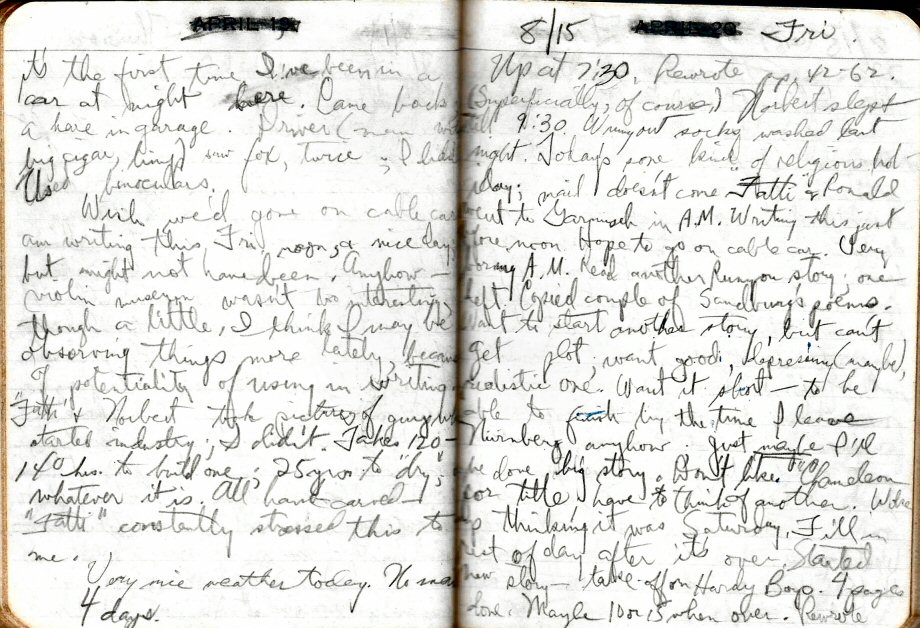 APRIL 19,
it's the first time I've been in a
car at night here. Came back,
a hare in garage. Driver (man
big cigar, saw fox, twice; I
Used binoculars.
Wish we'd gone on cable car
am writing this, Fri, noon, a nice day,
but might not have been. Anyhow —
violin museum wasn't too interesting,
though a little, I think I may be
observing things more lately, because
of potentiality of using in writing
"Fatti" & Norbert took pictures of guy who
started industry; I didn't. Takes 120-
140 hrs. to build one; 25 yrs to "dry",
whatever it is. All hand-carved —
"Fatti" constantly stressed this to
me.
Very nice weather today. No
4 days.
8/15 APRIL 20 Fri.
Up at 7:30, Rewrote pp. 42-62.
(Superficially, of course,) Norbert slept
till 9:30. Wrung out socks, washed last
night. Today's some kind of religious hol
iday; mail doesn't come. "Fatti" & Ronald
went to Garmisch in A.M. Writing this just
before noon. Hope to go on cable car. Very
boring A.M. Read another Runyon story; one
left. Copied couple of Sandburg's poems.
Want to start another story, but can't
get plot; want good, depressing (maybe),
realistic one. Want it short — to be
able to finish by the time I leave
Nürnberg, anyhow. Just maybe I'll
have done big story. Don't like "Chameleon"
for title, have to think of another. Woke
up thinking it was Saturday, I'll fill in
rest of day after it's over. Started
new story — take-off on Hardy Boys. 4 pages
done. Maybe 10 or 15 when over. Rewrote